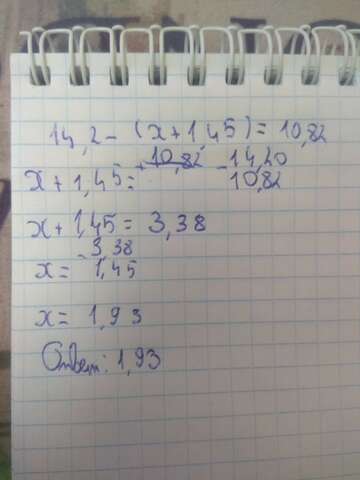 14,2 - (x + 1,45) = 10,82
x + 1,45 = 10,82 - 14,20
10,82
x + 1,45 = 3,38
- 3,38
x = 1,45
x = 1,93
Ответ: 1,93